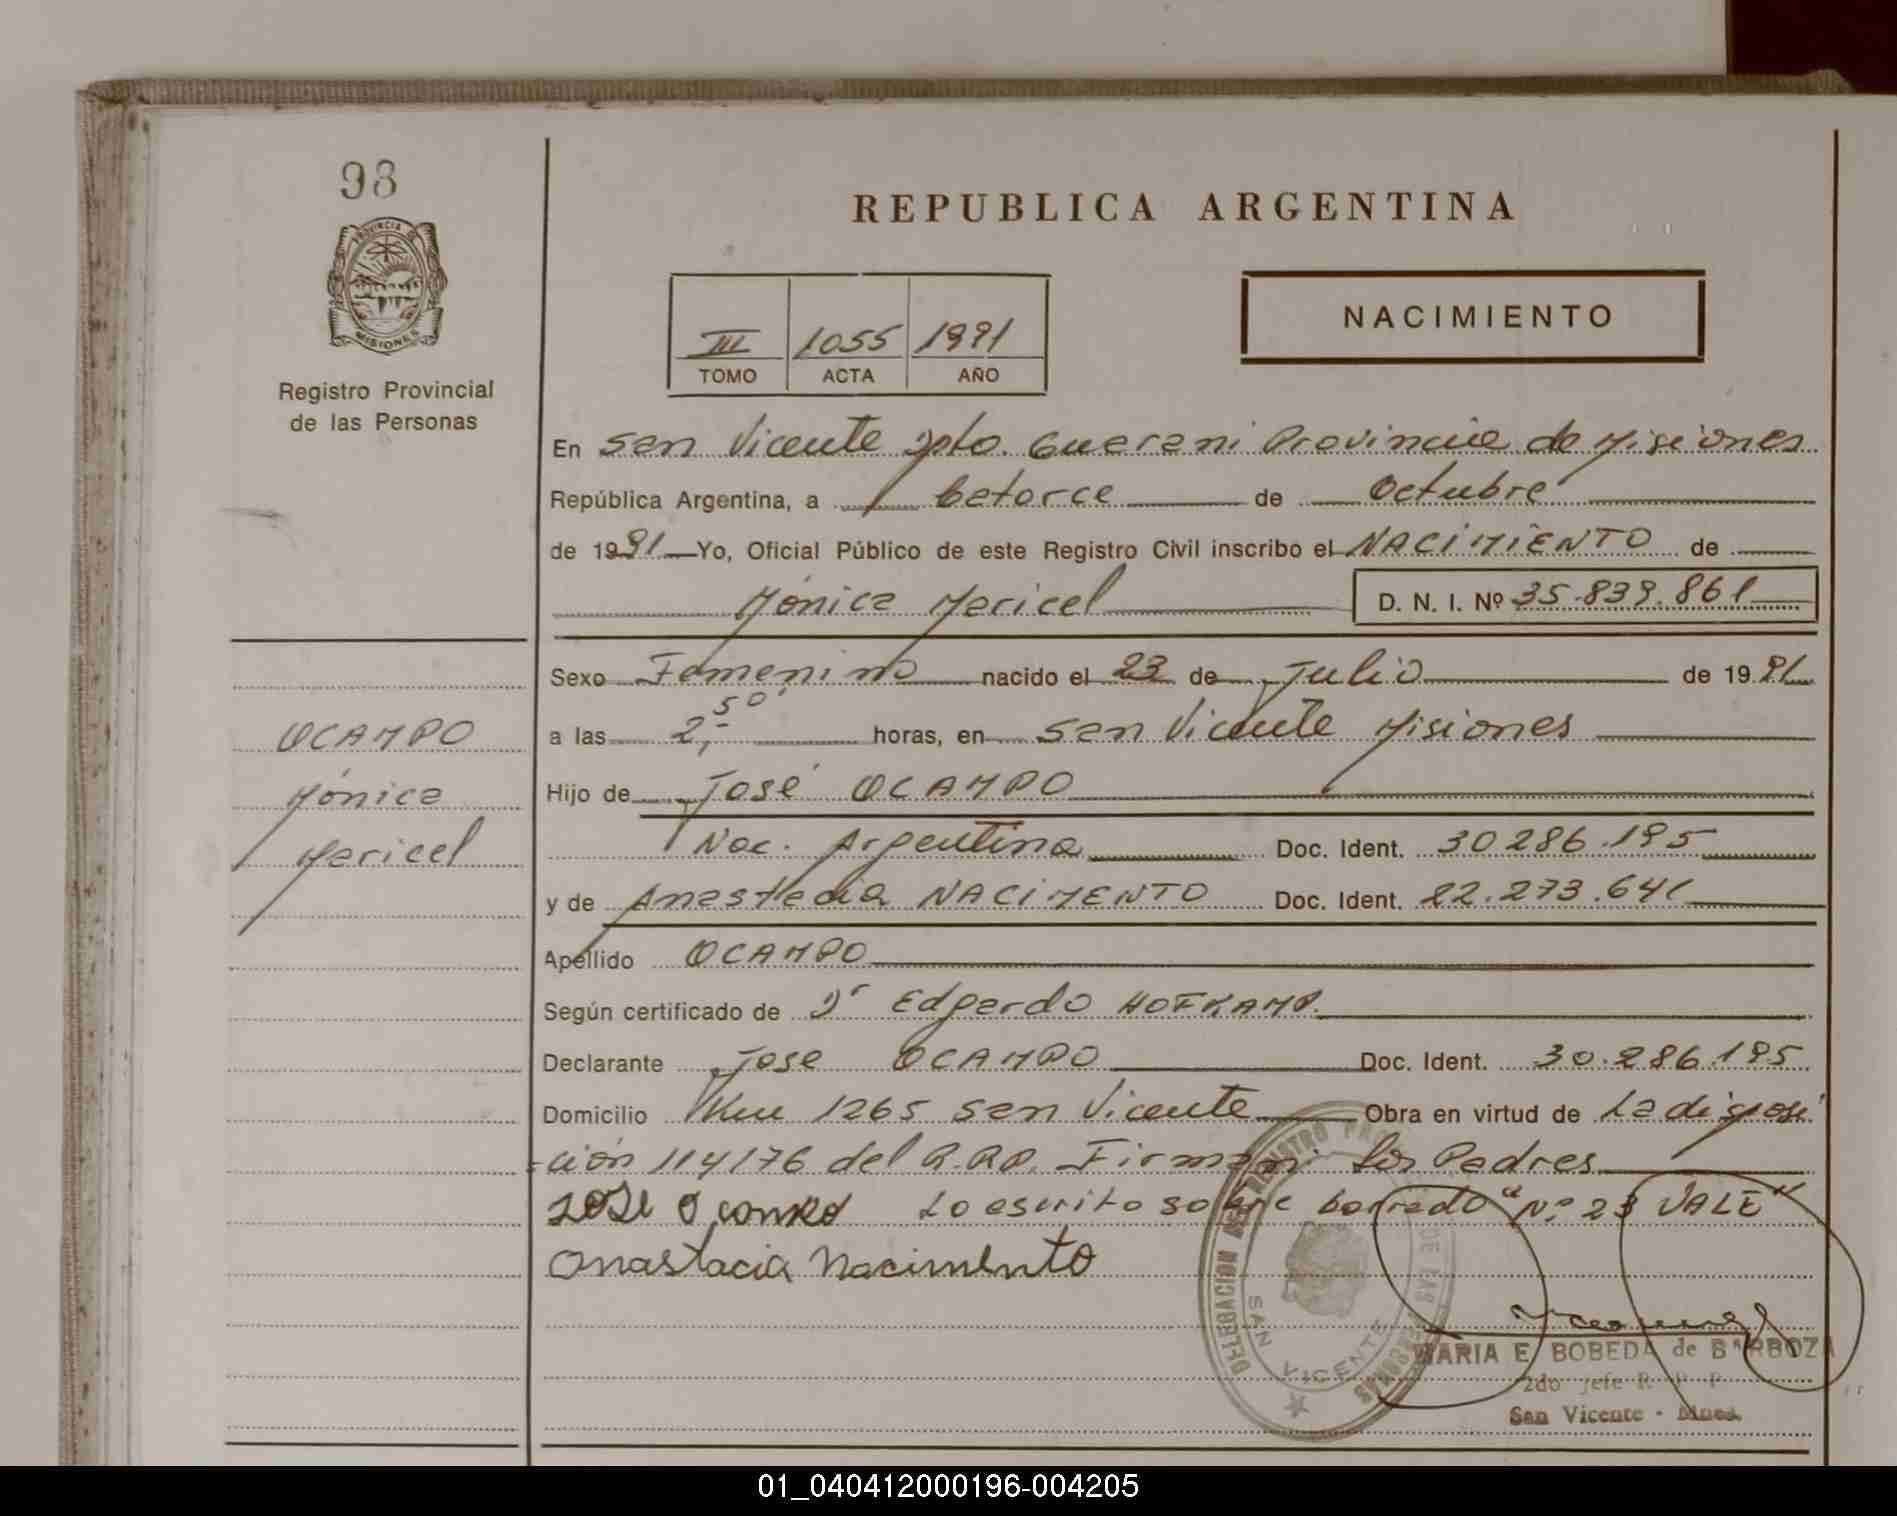 98
PROVINCIA DE
MISIONES
Registro Provincial
de las Personas
REPUBLICA ARGENTINA
III 1055 1991
TOMO ACTA AÑO
NACIMIENTO
En San Vicente Dpto. Guarani Provincia de Misiones
República Argentina, a catorce de Octubre
de 1991 Yo, Oficial Público de este Registro Civil inscribo el NACIMIENTO de
Mónica Maricel D. N. I. Nº 35.839.861
Sexo Femenino nacido el 23 de Julio de 1991
a las 2,50 horas, en San Vicente Misiones
Hijo de José OCAMPO
Nac. Argentina Doc. Ident. 30286.195
y de Anastacia NACIMENTO Doc. Ident. 22.273.641
Apellido OCAMPO
Según certificado de Dr Edgardo HOFKAMP.
Declarante José OCAMPO Doc. Ident. 30.286.195
Domicilio Km 1265 San Vicente Obra en virtud de La disposi
=ción 114/76 del R.P.P. Firman: los Padres
JOSE Ocampo Lo escrito sobre borrado "Nº 23 VALE"
Anastacia Nacimento
OCAMPO
Mónica
Maricel
DELEGACION DEL REGISTRO PROV. DE LAS PERSONAS
SAN VICENTE
MARIA E BOBEDA de BARBOZA
2do Jefe R P P
San Vicente - Mnes.
01_040412000196-004205